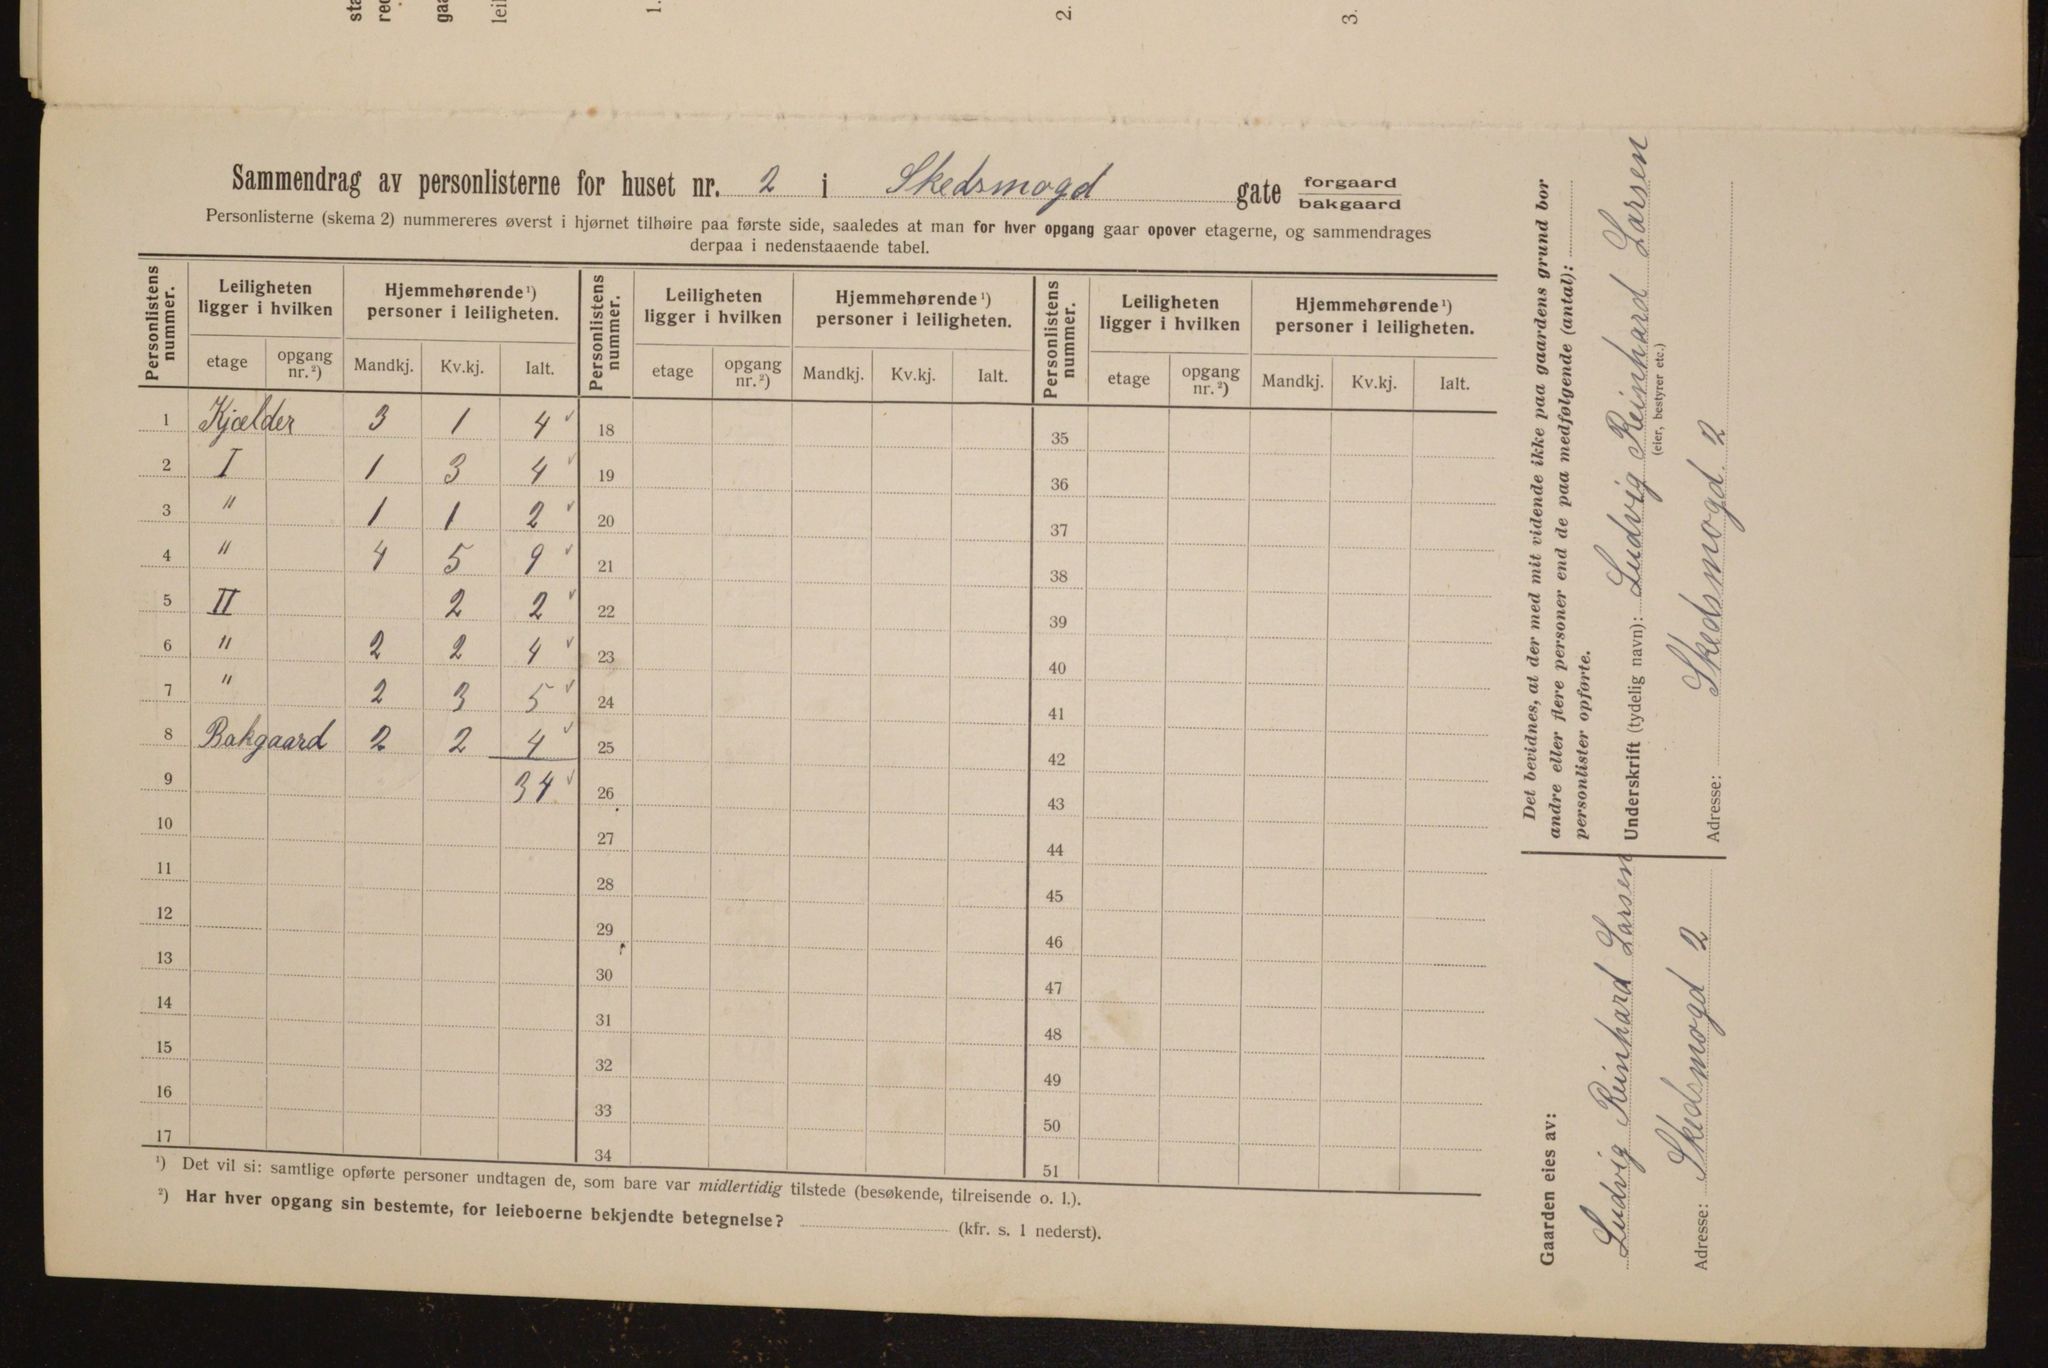 sta
red
gaa
lei
1.
2.
3.
Sammendrag av personlisterne for huset nr. 2 i Skedsmogd gate forgaard
bakgaard
Personlisterne (skema 2) nummereres øverst i hjørnet tilhøire paa første side, saaledes at man for hver opgang gaar opover etagerne, og sammendrages
derpaa i nedenstaaende tabel.
Personlistens nummer. Leiligheten ligger i hvilken Hjemmehørende¹) personer i leiligheten. Personlistens nummer. Leiligheten ligger i hvilken Hjemmehørende¹) personer i leiligheten. Personlistens nummer. Leiligheten ligger i hvilken Hjemmehørende¹) personer i leiligheten.
etage opgang nr.²) Mandkj. Kv.kj. Ialt. etage opgang nr.²) Mandkj. Kv.kj. Ialt. etage opgang nr.²) Mandkj. Kv.kj. Ialt.
1 Kjælder 3 1 4 ✓ 18 35
2 I 1 3 4 ✓ 19 36
3 " 1 1 2 ✓ 20 37
4 " 4 5 9 ✓ 21 38
5 II 2 2 ✓ 22 39
6 " 2 2 4 ✓ 23 40
7 " 2 3 5 ✓ 24 41
8 Bakgaard 2 2 4 ✓ 25 42
9 34 ✓ 26 43
10 27 44
11 28 45
12 29 46
13 30 47
14 31 48
15 32 49
16 33 50
17 34 51
¹) Det vil si: samtlige opførte personer undtagen de, som bare var midlertidig tilstede (besøkende, tilreisende o. l.).
²) Har hver opgang sin bestemte, for leieboerne bekjendte betegnelse? (kfr. s. 1 nederst).
Det bevidnes, at der med mit vidende ikke paa gaardens grund bor
andre eller flere personer end de paa medfølgende (antal):
personlister opførte.
Underskrift (tydelig navn): Ludvig Reinhard Larsen
(eier, bestyrer etc.)
Adresse: Skedsmogd. 2
Gaarden eies av:
Ludvig Reinhard Larsen
Adresse: Skedsmogd 2